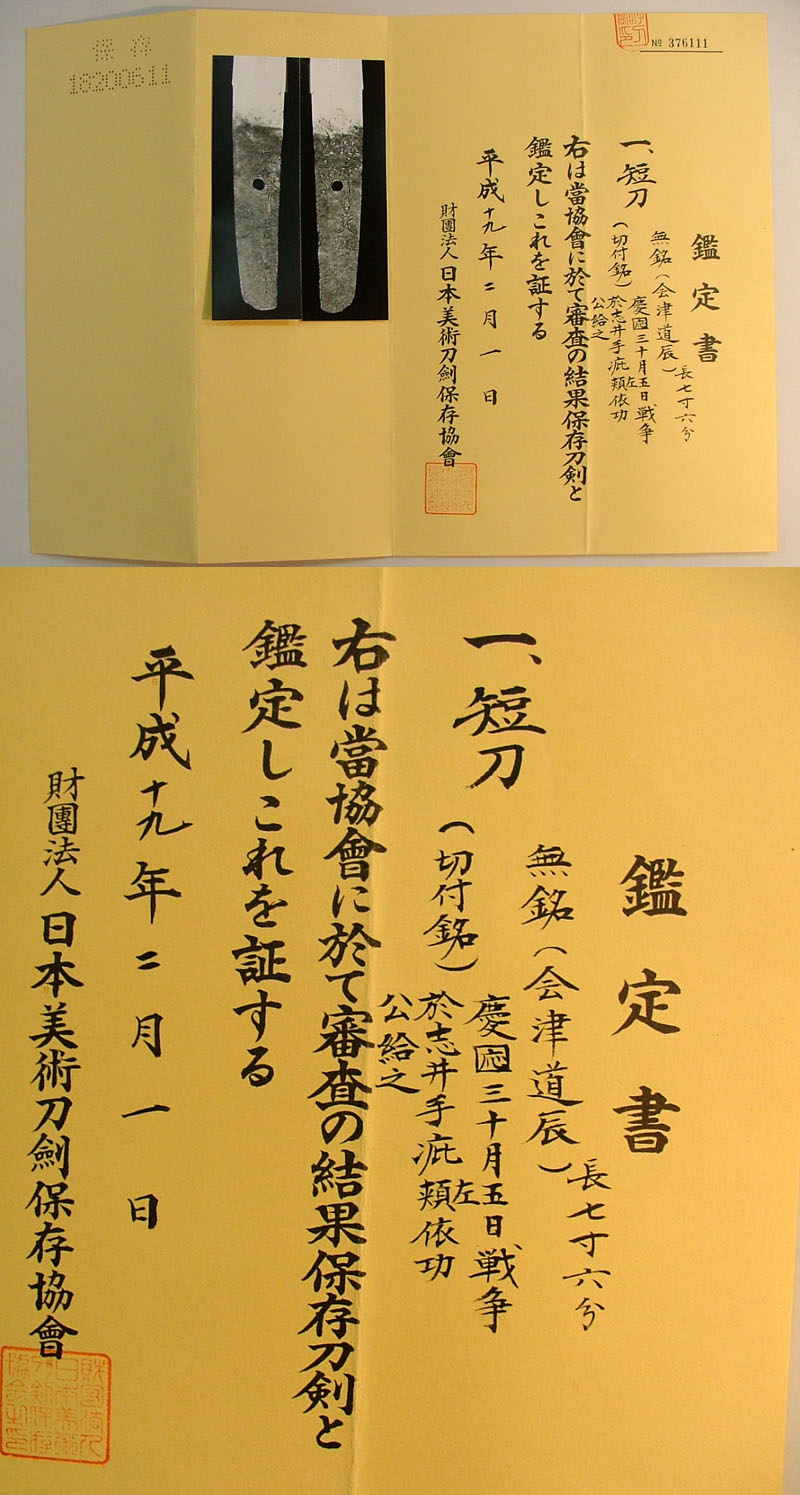 保存
18200611
№ 376111
鑑定書
一、短刀
無銘(会津道辰)長七寸六分
(切付銘)
慶應三十月五日戦争
於志井手疵左頬依功
公給之
右は當協會に於て審査の結果保存刀剣と
鑑定しこれを証する
平成十九年二月一日
財團法人日本美術刀劍保存協會
鑑定書
一、短刀
無銘(会津道辰)長七寸六分
(切付銘)
慶應三十月五日戦争
於志井手疵左頬依功
公給之
右は當協會に於て審査の結果保存刀剣と
鑑定しこれを証する
平成十九年二月一日
財團法人日本美術刀劍保存協會